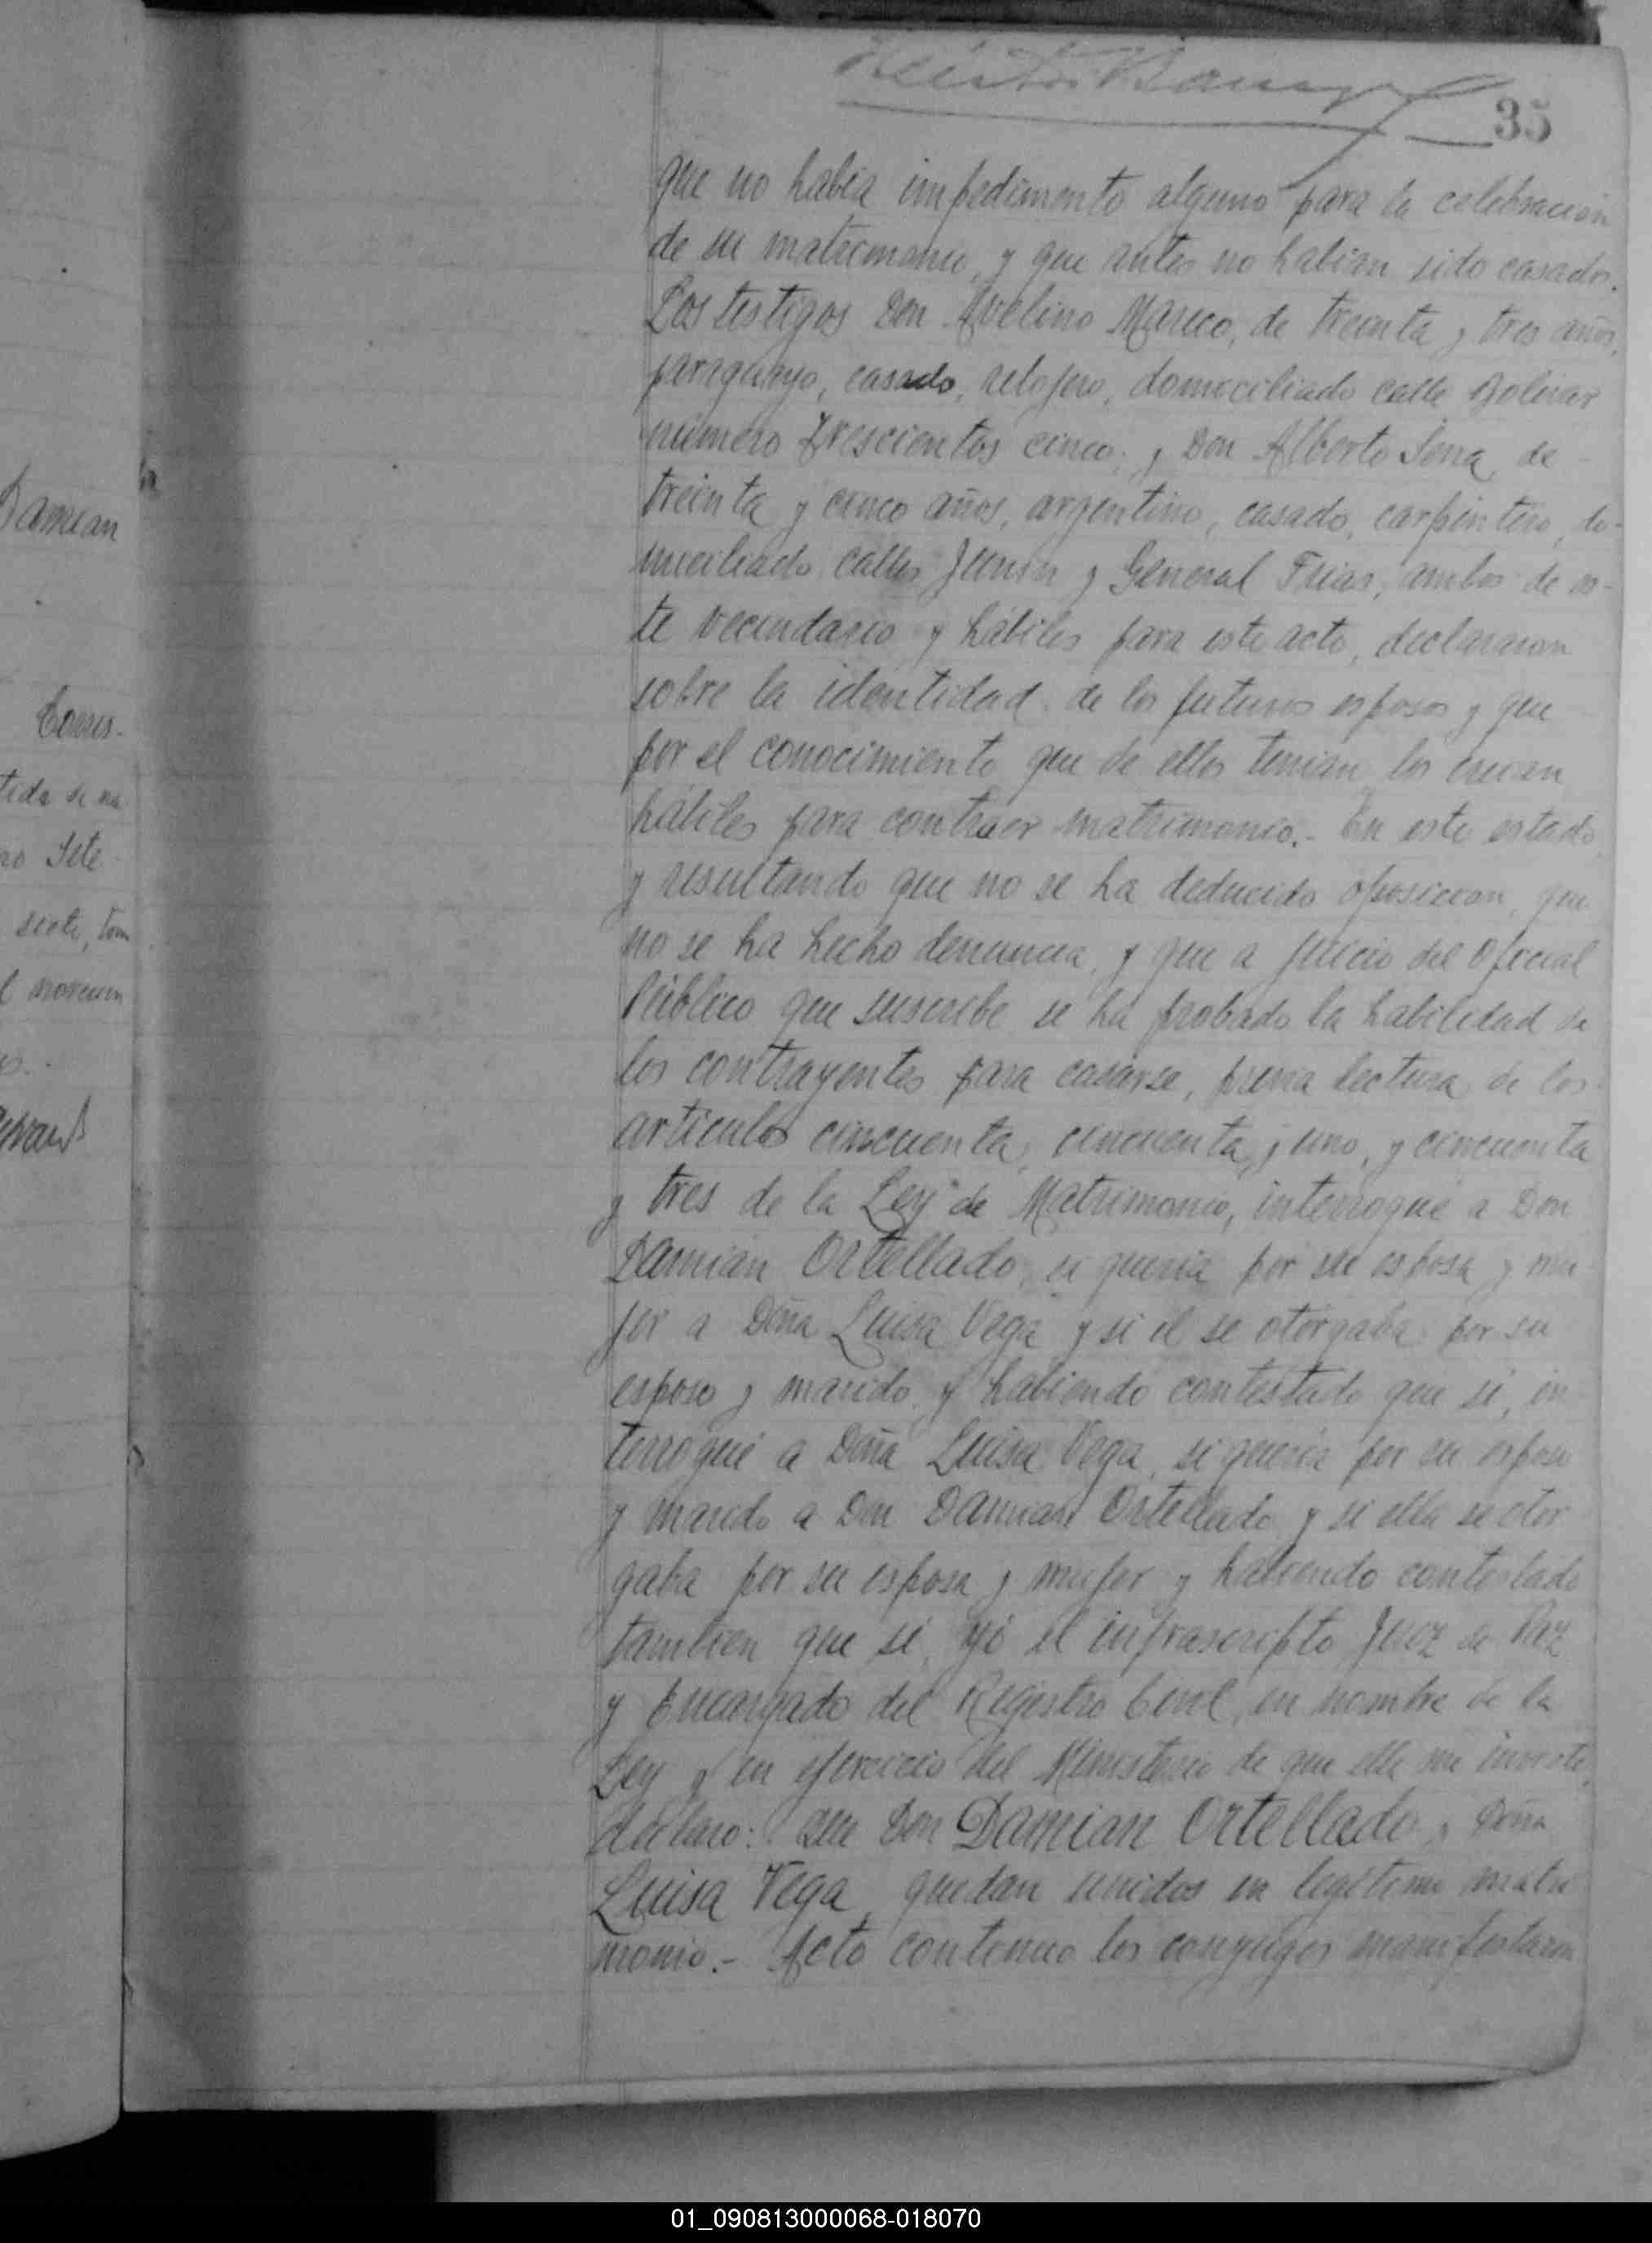 35
que no habia impedimento alguno para la celebracion
de su matrimonio, y que antes no habian sido casados.
Los testigos Don Avelino Mareco, de treinta y tres años,
paraguayo, casado, relojero, domiciliado calle Bolivar
número trescientos cinco; y Don Alberto Sena, de
treinta y cinco años, argentino, casado, carpintero, do-
miciliado calles Junin y General Frias, ambos de es-
te vecindario y hábiles para este acto, declararon
sobre la identidad de los futuros esposos y que
por el conocimiento que de ellos tenian los creian
hábiles para contraer matrimonio.- En este estado
y resultando que no se ha deducido oposicion, que
no se ha hecho denuncia, y que a juicio del Oficial
Público que suscribe se ha probado la habilidad de
los contrayentes para casarse, previa lectura de los
articulos cincuenta, cincuenta y uno, y cincuenta
y tres de la Ley de Matrimonio, interrogué a Don
Damián Ortellado, si queria por su esposa y mu
jer a Doña Luisa Vega y si el se otorgaba por su
esposo y marido y habiendo contestado que si, in
terrogué a Doña Luisa Vega, si queria por su esposo
y marido a Don Damian Ortellado y si ella se otor
gaba por su esposa y mujer y habiendo contestado
tambien que si, yo el infrascripto Juez de Paz
y Encargado del Registro Civil, en nombre de la
Ley y en ejercicio del Ministerio de que ella me inviste,
declaro: Que Don Damian Ortellado y Doña
Luisa Vega, quedan unidos en legítimo matri
monio.- Acto continuo los conyuges manifestaron
Damian
tida de na
ro Sete
siete, tom
01_090813000068-018070